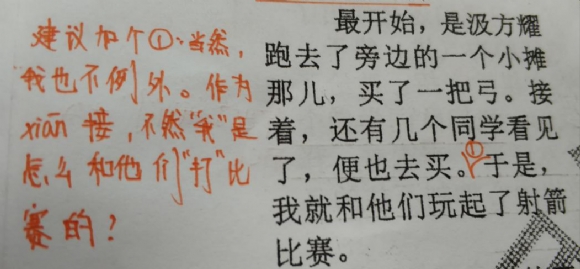 建议加个①：当然，
我也不例外。作为
xiān接，不然“我”是
怎么和他们“打”比
赛的？
最开始，是汲方耀
跑去了旁边的一个小摊
那儿，买了一把弓。接
着，还有几个同学看见
了，便也去买。①于是，
我就和他们玩起了射箭
比赛。